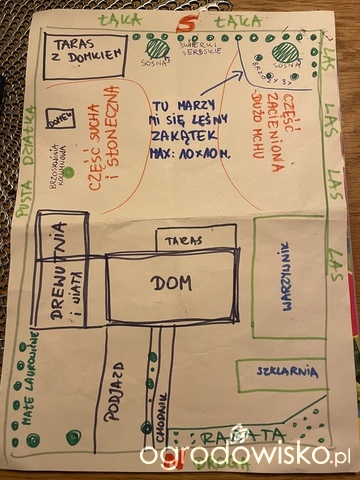 ŁĄKA S ŁĄKA
TARAS
Z DOMKIEM
SOSNA
ŚWIERKI
SERBSKIE
SOSNA
BRZOZY 3X
LAS
LAS
LAS
LAS
TU MARZY
MI SIĘ LEŚNY
ZAKĄTEK
MAX: 10X10M.
CZĘŚĆ
ZACIENIONA
-DUŻO MCHU
CZĘŚĆ SUCHA
I SŁONECZNA
DOMEK
BRZOSKWINIA
KOLUMNOWA
PUSTA DZIAŁKA
DREWUTNIA
i WIATA
TARAS
DOM
WARZYWNIK
SZKLARNIA
MAŁE LAUROWIŚNIE
PODJAZD
CHODNIK
RABATA
DROGA
ogrodowisko.pl